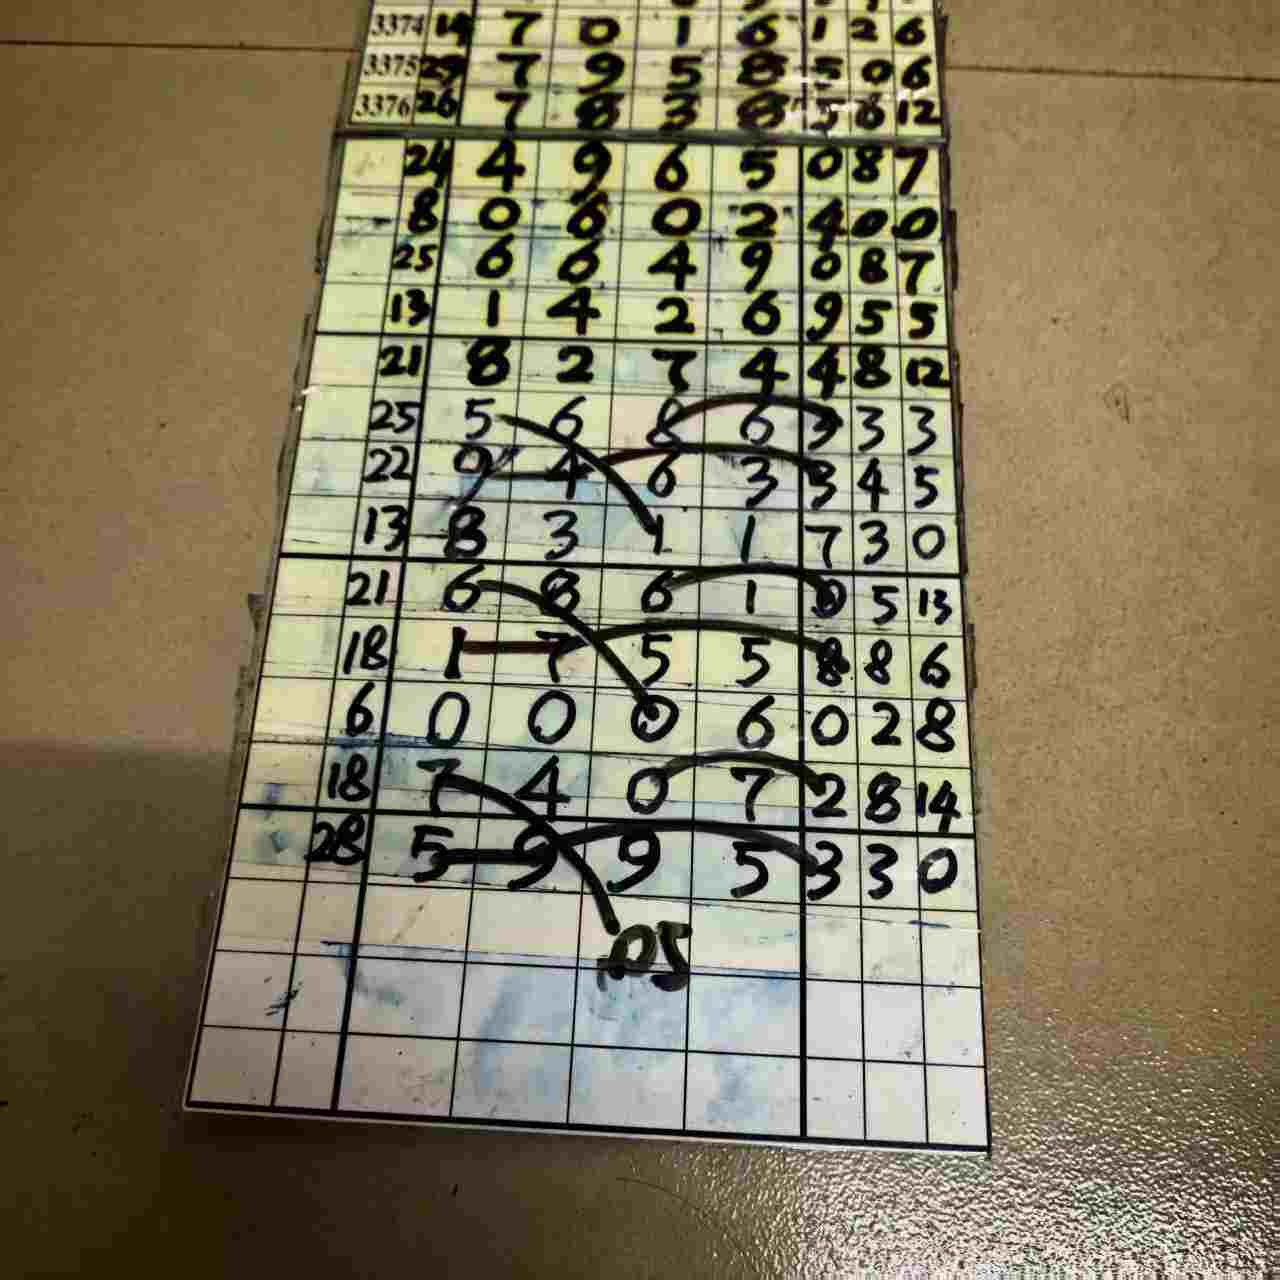 3374 19 7 0 1 6 1 2 6
3375 29 7 9 5 8 5 0 6
3376 26 7 8 3 8 5 6 12
24 4 9 6 5 0 8 7
8 0 6 0 2 4 0 0
25 6 6 4 9 0 8 7
13 1 4 2 6 9 5 5
21 8 2 7 4 4 8 12
25 5 6 8 6 3 3 3
22 9 4 6 3 3 4 5
13 8 3 1 1 7 3 0
21 6 8 6 1 0 5 13
18 1 7 5 5 8 8 6
6 0 0 0 6 0 2 8
18 7 4 0 7 2 8 14
28 5 9 9 5 3 3 0
05